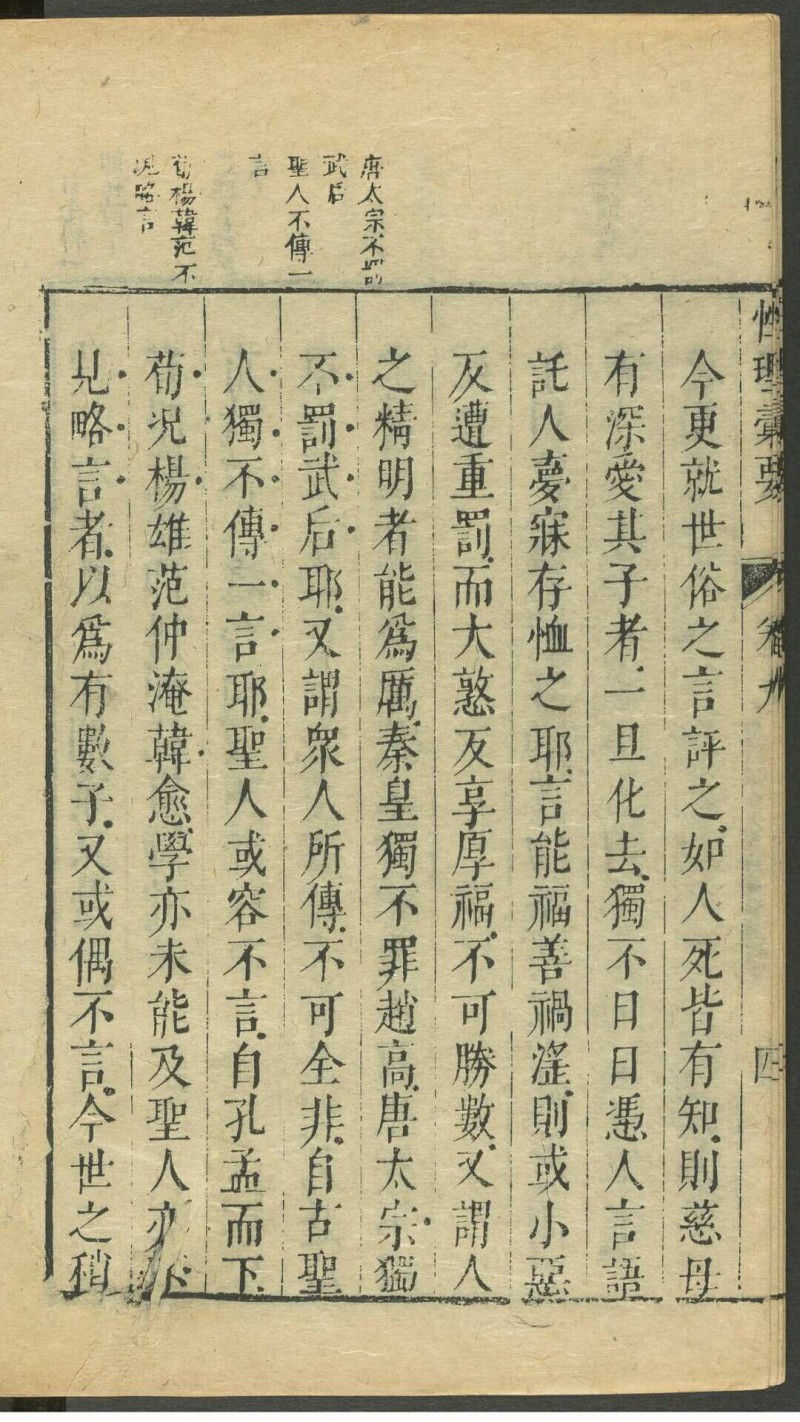 唐太宗不罰
武后
聖人不傳一
言
荀楊韓范不
見略言
性理彙要
卷九
四
今更就世俗之言評之如人死皆有知則慈母
有深愛其子者一旦化去獨不日日憑人言語
託人夢寐存恤之耶言能福善禍淫則或小惡
反遭重罰而大憝反享厚福不可勝數又謂人
之精明者能爲厲秦皇獨不罪趙高唐太宗獨
不罰武后耶又謂衆人所傳不可全非自古聖
人獨不傳一言耶聖人或容不言自孔孟而下
荀况楊雄范仲淹韓愈學亦未能及聖人亦不
見略言者以爲有數子又或偶不言今世之稍